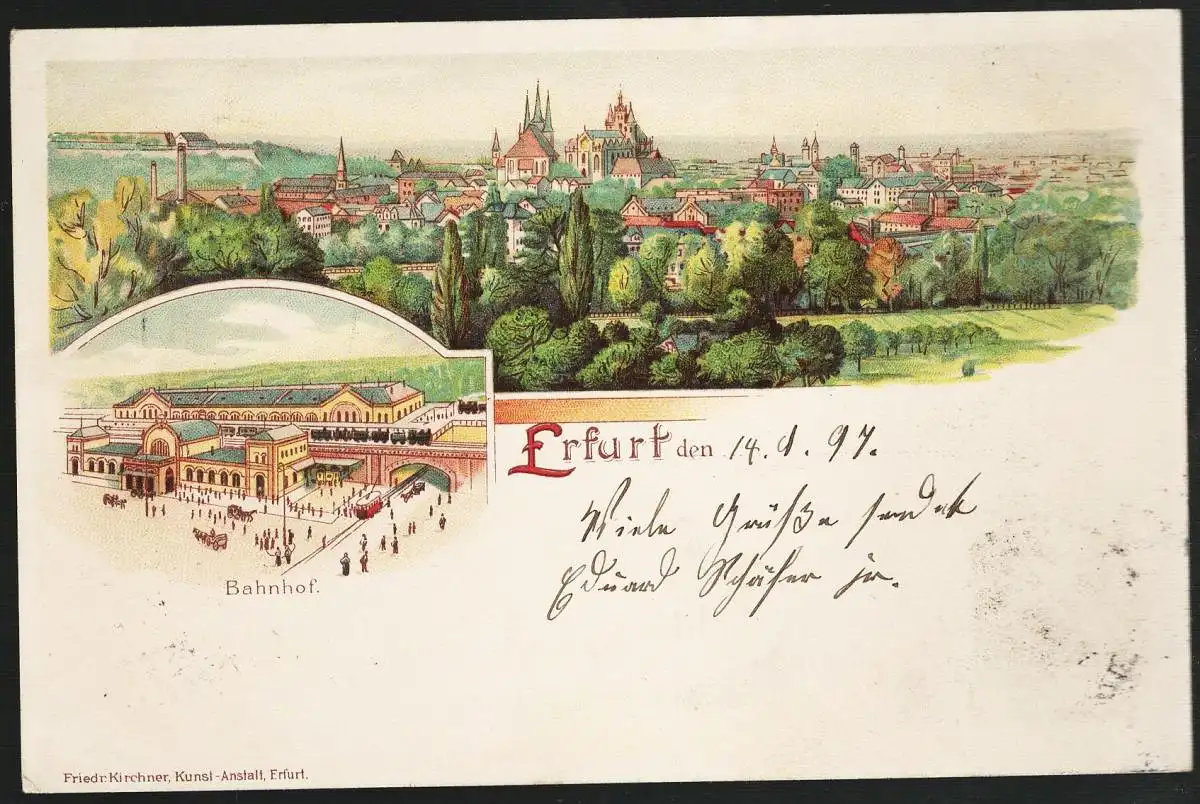 Erfurt den 14. 9. 97.
Viele Grüße sendet
Eduard Schäfer jr.
Bahnhof.
Friedr. Kirchner, Kunst-Anstalt, Erfurt.